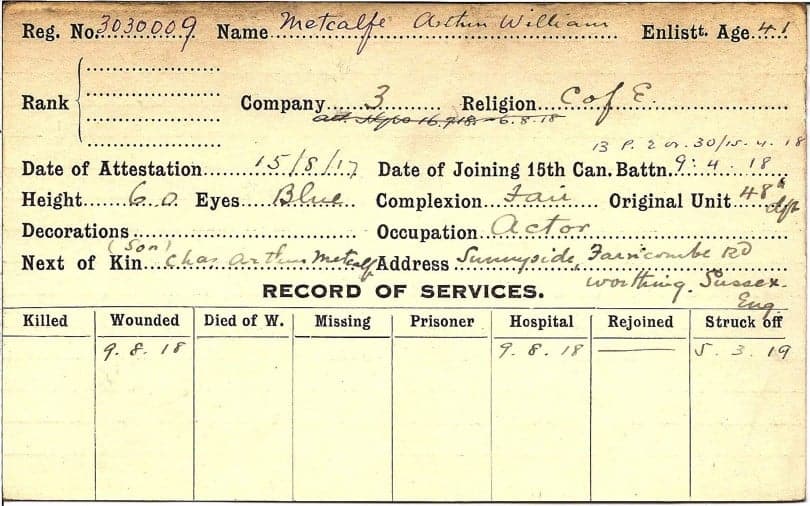 Reg. No. 3030009 Name Metcalfe Arthur William Enlistt. Age 41
Rank Company 3 Religion C of E.
att. 16.7.18 - 6.8.18
13 P. 2 or. 30/15-4.18
Date of Attestation 15/8/17 Date of Joining 15th Can. Battn. 9.4.18
Height 6.0 Eyes Blue Complexion Fair Original Unit 48th
Decorations Occupation Actor
(Son)
Next of Kin Chas Arthur Metcalf Address Sunnyside, Rd
Worthing. Sussex.
Eng
RECORD OF SERVICES.
Killed Wounded Died of W. Missing Prisoner Hospital Rejoined Struck off
9.8.18 9.8.18 5.3.19